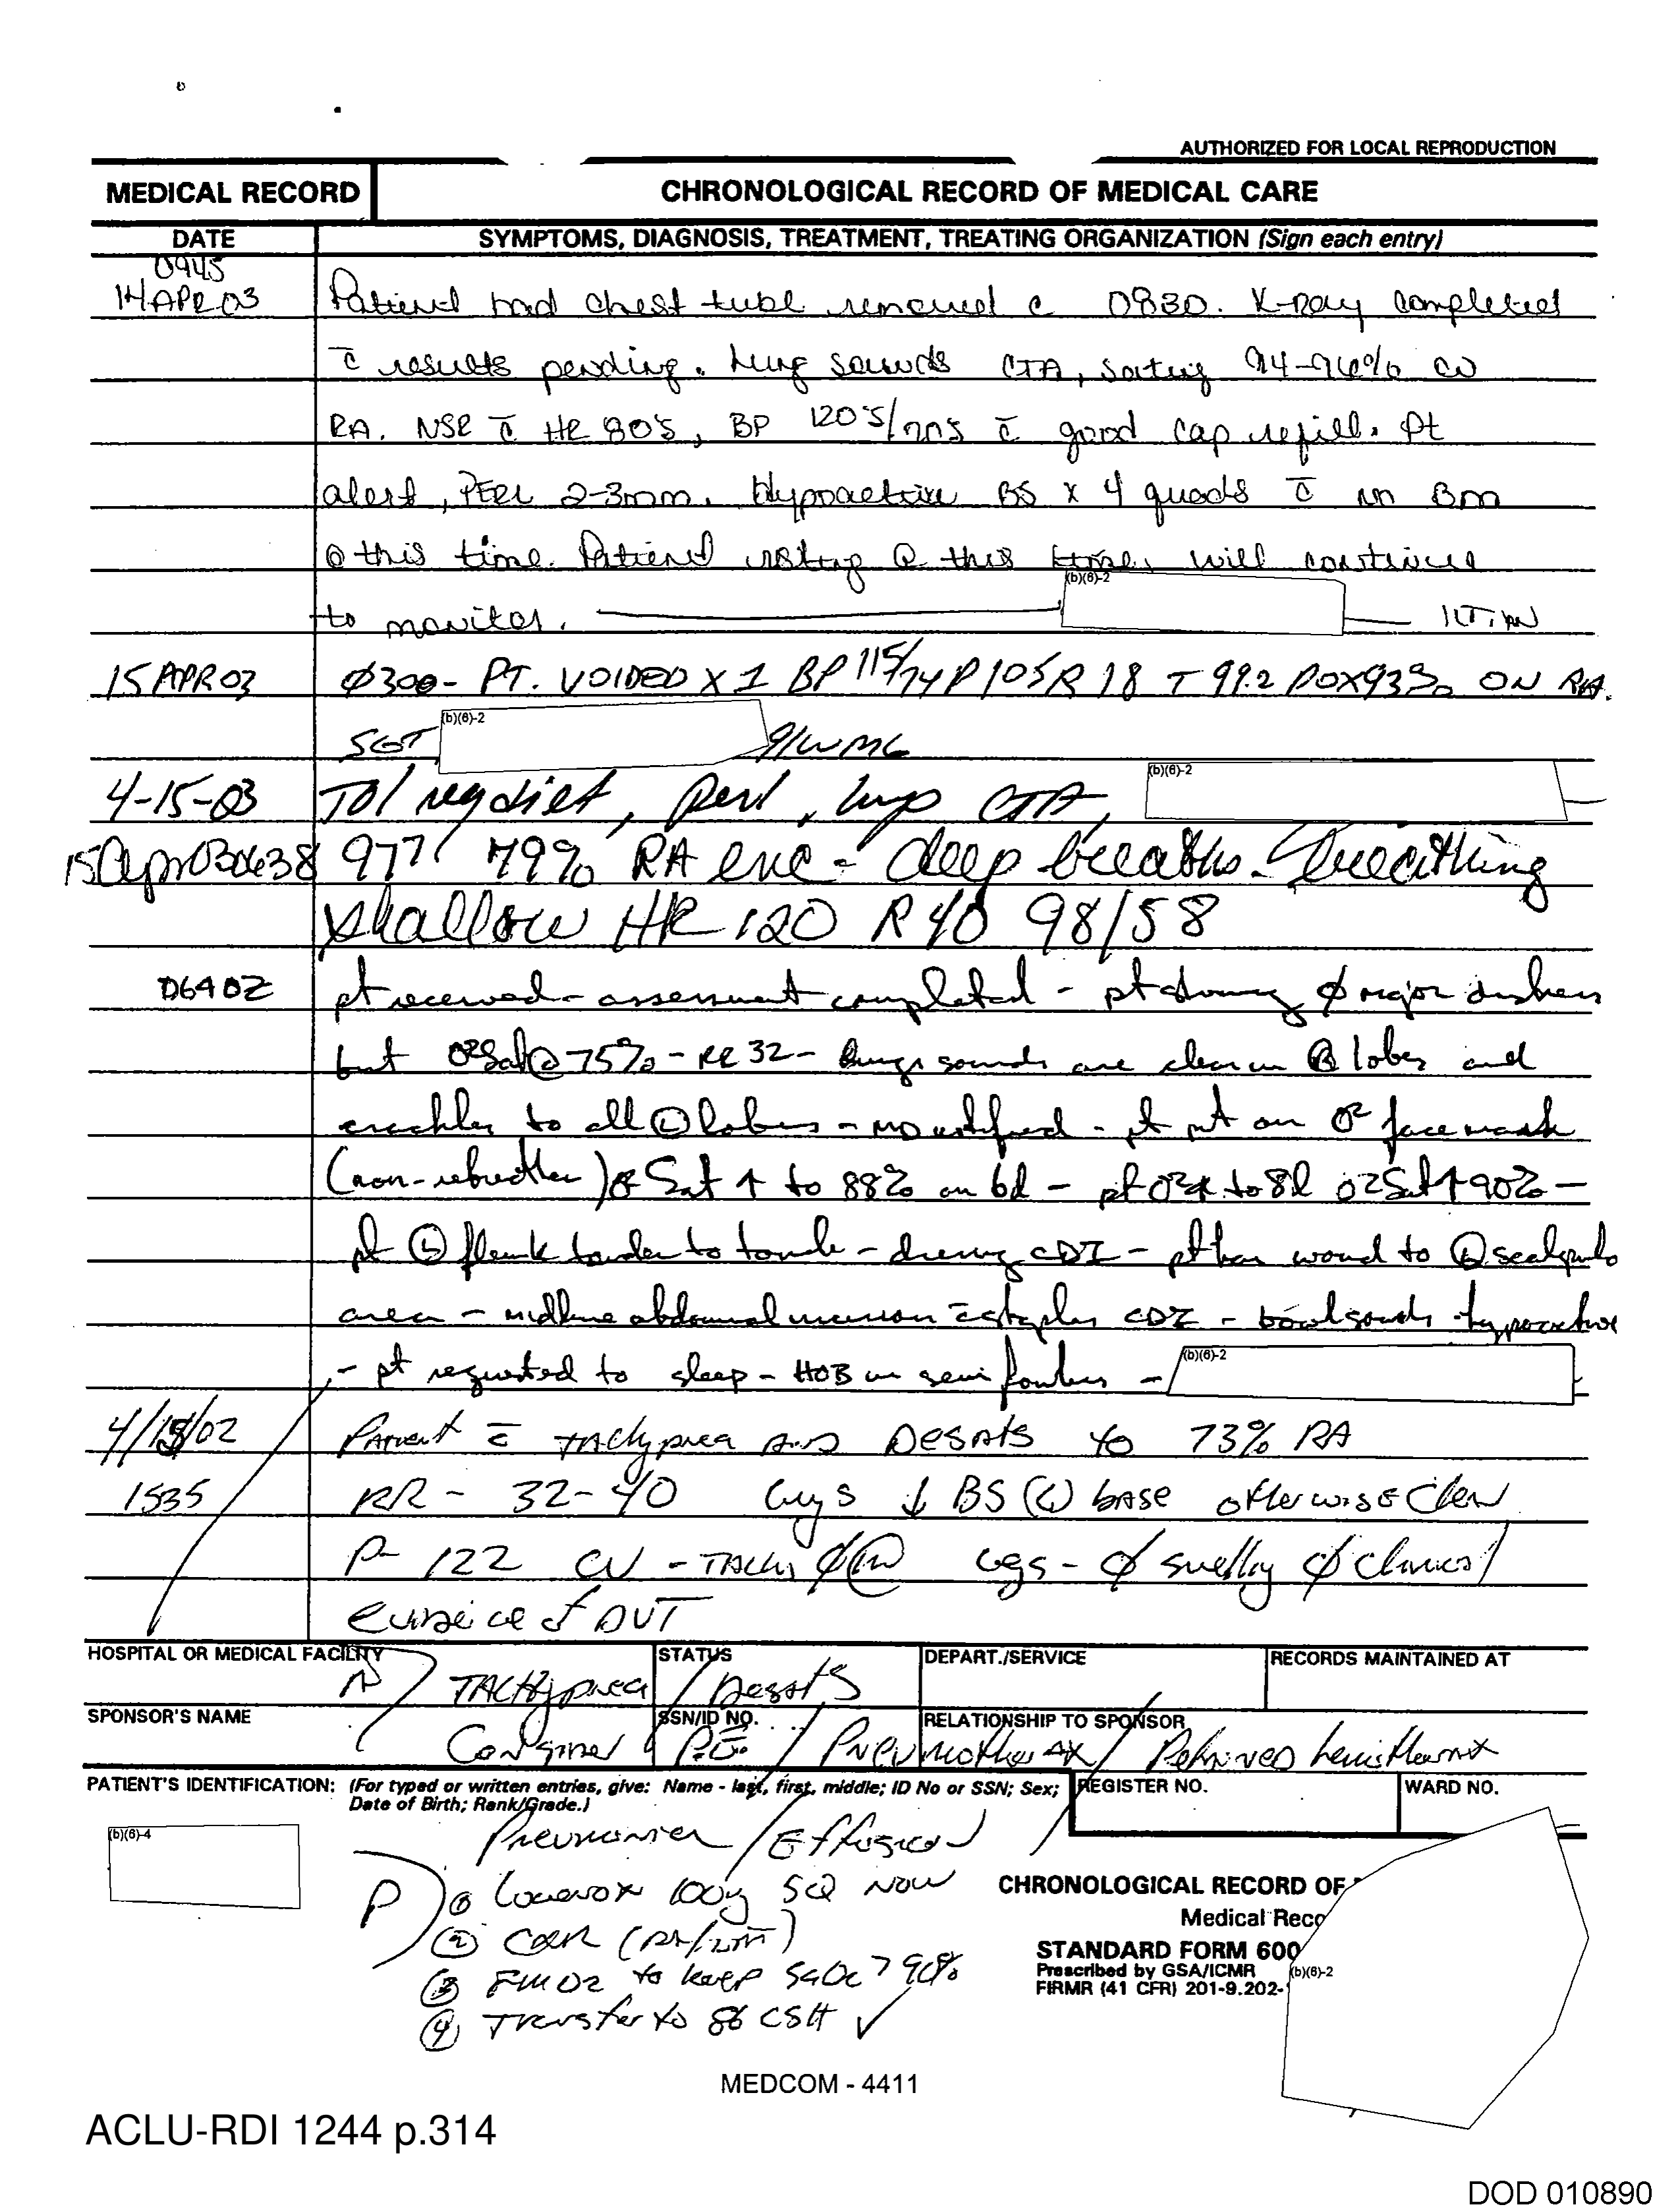 AUTHORIZED FOR LOCAL REPRODUCTION
MEDICAL RECORD CHRONOLOGICAL RECORD OF MEDICAL CARE
DATE SYMPTOMS, DIAGNOSIS, TREATMENT, TREATING ORGANIZATION (Sign each entry)
0945
14 APR 03 Patient had chest tube removed @ 0830. X-Ray completed
c̄ results pending. Lung sounds CTA, sating 94-96% on
RA. NSR c̄ HR 80's, BP 120's/70s c̄ good cap refill. Pt
alert, PERL 2-3mm. Hypoactive BS x 4 quads c̄ no BM
@ this time. Patient resting @ this time, will continue
to monitor. (b)(6)-2 1LT, AN
15 APR 03 Ø300- PT. VOIDED X 1 BP 115/74 P 105 R 18 T 99.2 POX 93% ON RA.
SGT (b)(6)-2 91WM6
4-15-03 Tol reg diet, perl, lungs CTA, (b)(6)-2
15 Apr 03 0638 97⁷ 79% RA enc - deep breaths. breathing
shallow HR 120 R 40 98/58
0640Z pt received - assessment completed - pt showing Ø major distress
but O2Sat @ 75% - RR 32 - lungs sounds are clear in Ⓡ lobes and
crackles to all Ⓛ lobes - MD notified - pt put on O2 face mask
(non-rebreather) O2 Sat ↑ to 88% on 6l - pt O2 ↑ to 8l O2Sat ↑ 90% -
pt Ⓛ flank tender to touch - dressing CDI - pt has wound to Ⓛ
area - midline abdominal incision c̄ staples CDI - bowel sounds hypoactive
- pt requested to sleep - HOB in semi fowlers - (b)(6)-2
4/15/02 Patient c̄ tachypnea and Desats to 73% RA
1535 RR - 32-40 lungs ↓ BS (L) base otherwise clear
P- 122 CV - Tachy Ø m legs - Ø swelling Ø clinical
evidence of DVT
HOSPITAL OR MEDICAL FACILITY STATUS DEPART./SERVICE RECORDS MAINTAINED AT
A/ Tachypnea / Desats
SPONSOR'S NAME SSN/ID NO. RELATIONSHIP TO SPONSOR
Consider P.E. / Pneumothorax / Retained hemithorax
PATIENT'S IDENTIFICATION: (For typed or written entries, give: Name - last, first, middle; ID No or SSN; Sex; Date of Birth; Rank/Grade.) REGISTER NO. WARD NO.
(b)(6)-4
Pneumonia / Effusion
P) ① Lovenox 100mg SQ NOW
② CXR (PA/LAT)
③ FMO2 to keep SaO2 > 90%
④ Transfer to 86 CSH ✓
CHRONOLOGICAL RECORD OF
Medical Reco
STANDARD FORM 600
Prescribed by GSA/ICMR
FIRMR (41 CFR) 201-9.202-
(b)(6)-2
MEDCOM - 4411
ACLU-RDI 1244 p.314
DOD 010890